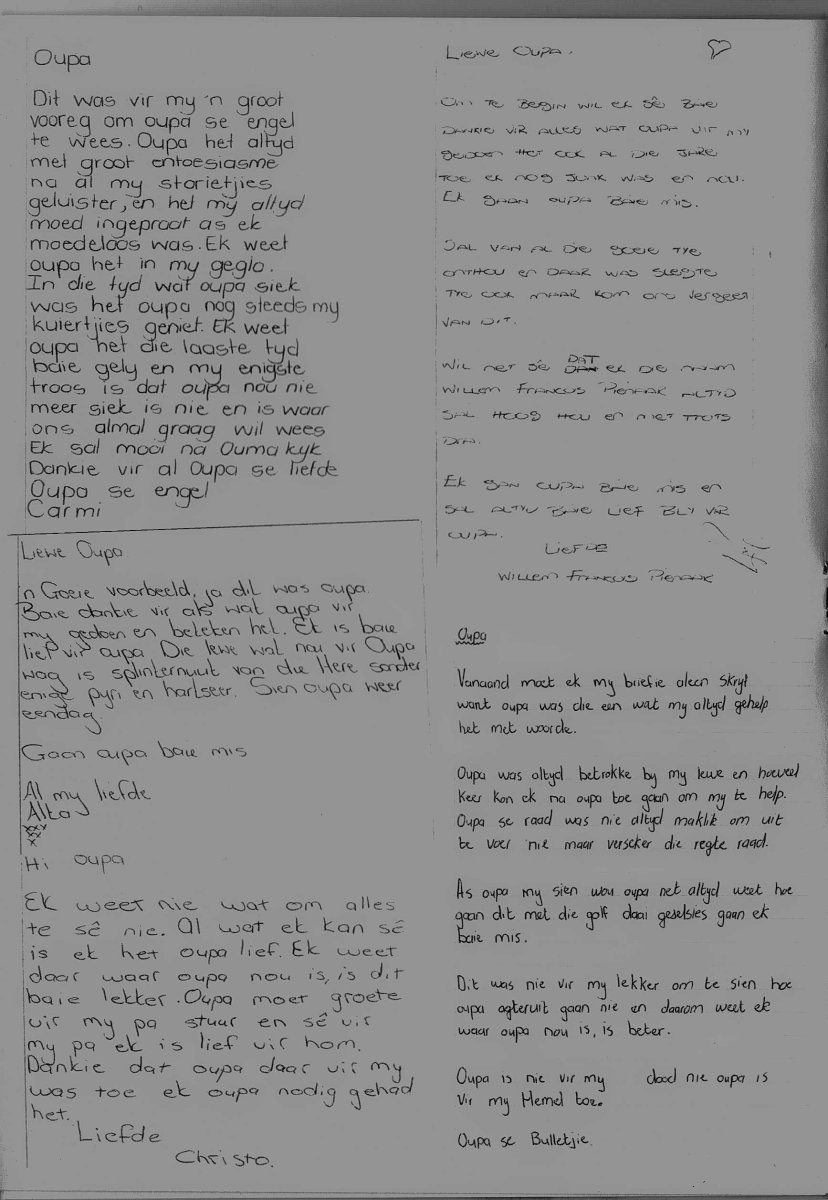 Oupa
Dit was vir my 'n groot
vooreg om oupa se engel
te wees. Oupa het altyd
met groot entoesiasme
na al my storietjies
geluister, en het my altyd
moed ingepraat as ek
moedeloos was. Ek weet
oupa het in my geglo.
In die tyd wat oupa siek
was het oupa nog steeds my
kuiertjies geniet. Ek weet
oupa het die laaste tyd
baie gely en my enigste
troos is dat oupa nou nie
meer siek is nie en is waar
ons almal graag wil wees
Ek sal mooi na Ouma kyk
Dankie vir al Oupa se liefde
Oupa se engel
Carmi
Liewe Oupa
'n Goeie voorbeeld, ja dit was oupa.
Baie dankie vir als wat oupa vir
my gedoen en beteken het. Ek is baie
lief vir oupa. Die lewe wat nou vir Oupa
wag is splinternuut van die Here sonder
enige pyn en hartseer. Sien oupa weer
eendag.
Gaan oupa baie mis
Al my liefde
Alta
xxx
x
Hi oupa
Ek weet nie wat om alles
te sê nie. Al wat ek kan sê
is ek het oupa lief. Ek weet
daar waar oupa nou is, is dit
baie lekker. Oupa moet groete
vir my pa stuur en sê vir
my pa ek is lief vir hom.
Dankie dat oupa daar vir my
was toe ek oupa nodig gehad
het.
Liefde
Christo.
Liewe Oupa.
Om te begin wil ek sê baie
dankie vir alles wat oupa vir my
gedoen het ook al die jare
toe ek nog junk was en nou.
Ek gaan oupa baie mis.
Sal van al die goeie tye
onthou en daar was slegte
tye ook maar kom ons vergeet
van dit.
Wil net sê dat ek die naam
Willem Francus Pienaar altyd
sal hoog hou en met trots
dra.
Ek gan oupa baie mis en
sal altyd baie lief bly vir
oupa.
Liefde
Willem Francus Pienaar
Oupa
Vanaand moet ek my briefie aleen skryf
want oupa was die een wat my altyd gehelp
het met woorde.
Oupa was altyd betrokke by my lewe en hoeveel
keer kon ek na oupa toe gaan om my te help.
Oupa se raad was nie altyd maklik om uit
te voer nie maar verseker die regte raad.
As oupa my sien wou oupa net altyd weet hoe
gaan dit met die golf daai geselsies gaan ek
baie mis.
Dit was nie vir my lekker om te sien hoe
oupa agteruit gaan nie en daarom weet ek
waar oupa nou is, is beter.
Oupa is nie vir my dood nie oupa is
vir my Hemel toe.
Oupa se Bulletjie.